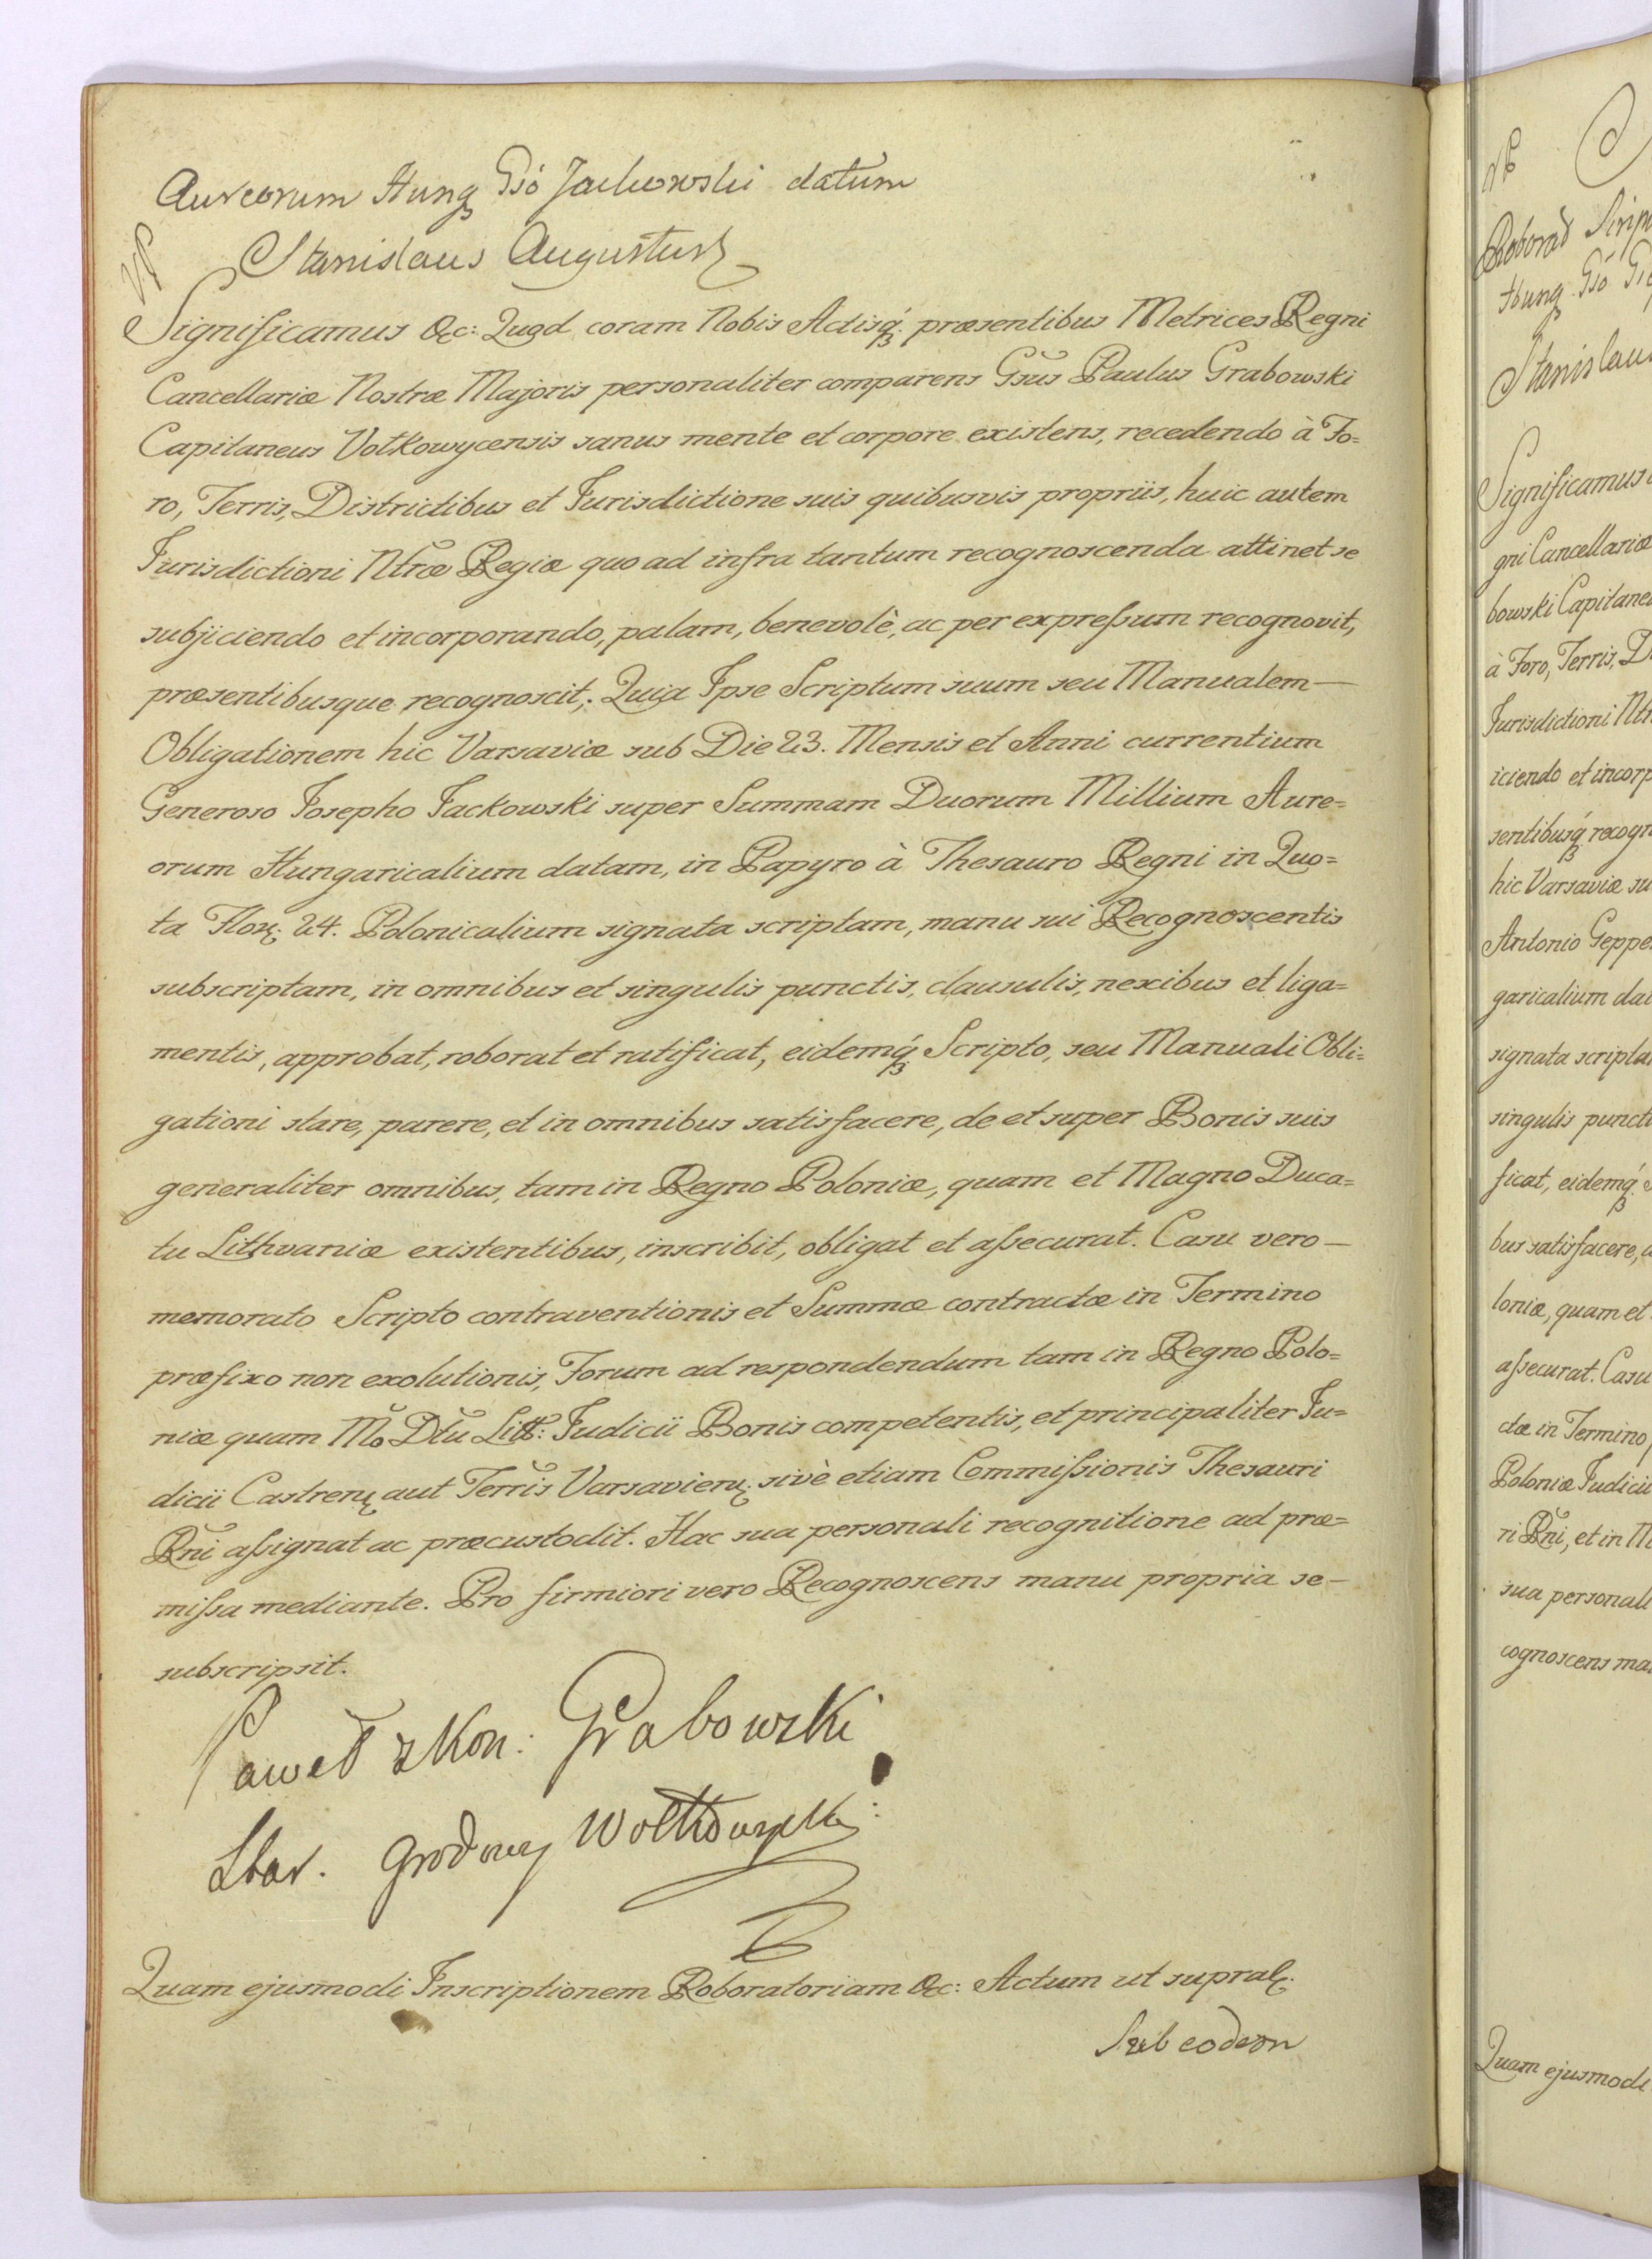 Aureorum Hung Gsó Jackowski datum
Stanislaus Augustus
Significamus &c: Quod coram Nobis Actisq́ præsentibus Metrices Regni
Cancellariæ Nostræ Majoris personaliter comparens Gsus Paulus Grabowski
Capitaneus Vołkowycensis sanus mente et corpore existens, recedendo à Fo=
ro, Terris, Districtibus et Jurisdictione suis quibusvis propriis, huic autem
Jurisdictioni Ntræ Regiæ quo ad infra tantum recognoscenda attinet se
subjiciendo et incorporando, palam, benevolè, ac per expreſsum recognovit,
præsentibusque recognoscit; Quia Ipse Scriptum suum seu Manualem —
Obligationem hic Varsaviæ sub Die 23. Mensis et Anni currentium
Generoso Josepho Jackowski super Summam Duorum Millium Aure=
orum Hungaricalium datam, in Papyro à Thesauro Regni in Quo=
ta Flor: 24. Polonicalium signata scriptam, manu sui Recognoscentis
subscriptam, in omnibus et singulis punctis, clausulis, nexibus et liga=
mentis, approbat, roborat et ratificat, eidemq́ Scripto, seu Manuali Obli=
gationi stare, parere, et in omnibus satisfacere, de et super Bonis suis
generaliter omnibus, tam in Regno Poloniæ, quam et Magno Duca=
tu Lithvaniæ existentibus, inscribit, obligat et aſsecurat. Casu vero —
memorato Scripto contraventionis et Summæ contractæ in Termino
præfixo non exolutionis, Forum ad respondendum tam in Regno Polo=
niæ quam Mo Dtu Litt: Judicii Bonis competentis, et principaliter Ju=
dicii Castren: aut Terris Varsavien: sivè etiam Commiſsionis Thesauri
Rni aſsignat ac præcustodit. Hac sua personali recognitione ad præ=
miſsa mediante. Pro firmiori vero Recognoscens manu propria se —
subscripsit.
Paweł z Kon: Grabowski
Star. Grodowy Wołkowyski:
Quam ejusmodi Inscriptionem Roboratoriam &c: Actum ut supra
Sub eodem
Roborat Scrip
Hung. Gsó
Stanislaus
Significamus
gni Cancellariæ
bowski Capitane
à Foro, Terris, D
Jurisdictioni Nt
iciendo et incorp
sentibusq́ recogn
hic Varsaviæ su
Antonio Geppe
garicalium dat
signata scripta
singulis puncti
ficat, eidemq́
bus satisfacere,
loniæ, quam et
aſsecurat. Casu
ctæ in Termino
Poloniæ Judicii
ri Rni, et in
sua personali
cognoscens ma
Quam ejusmodi